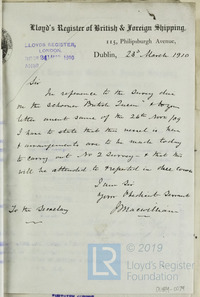 Lloyd's Register of British & Foreign Shipping.
115, Philipsburgh Avenue,
Dublin, 26th March 1910
LLOYD'S REGISTER,
LONDON.
Sir
In reference to the Survey due
on the schooner "British Queen" &
letter anent same of the 24th Nov/09
I have to state that this vessel is here
& arrangements are to be made today
to carry out No 2 Survey & that this
will be attended to & reported in due course
I am Sir
Your Obedient Servant
To the Secretary
© 2019
Lloyd's Register
Foundation